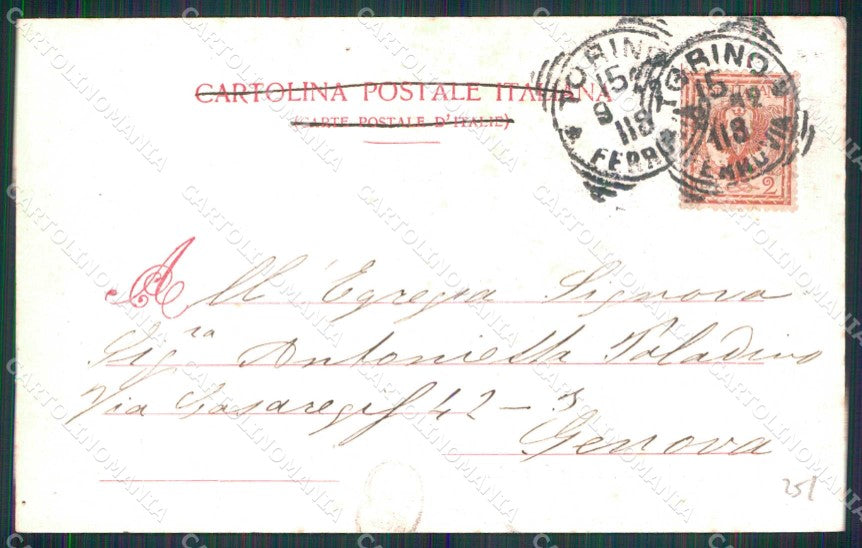 CARTOLINA POSTALE ITALIANA
(CARTE POSTALE D'ITALIE)
TORINO
15
9
118
FERR
TORINO
15
118
FERROVIA
2
All' Egregia Signora
Sig.ra Antonietta Paladino
Via Casaregis 42 - 3
Genova
25/
CARTOLINOMANIA